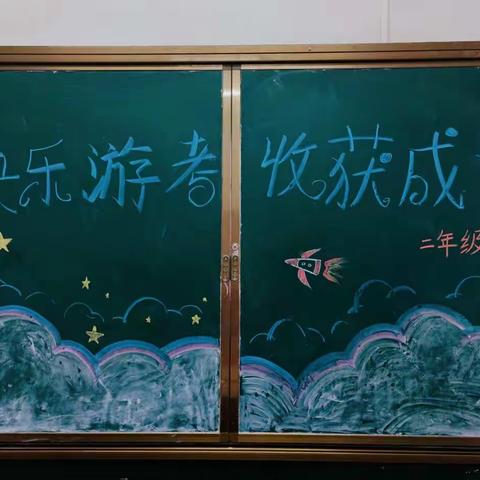 快乐游考 收获成
二年级